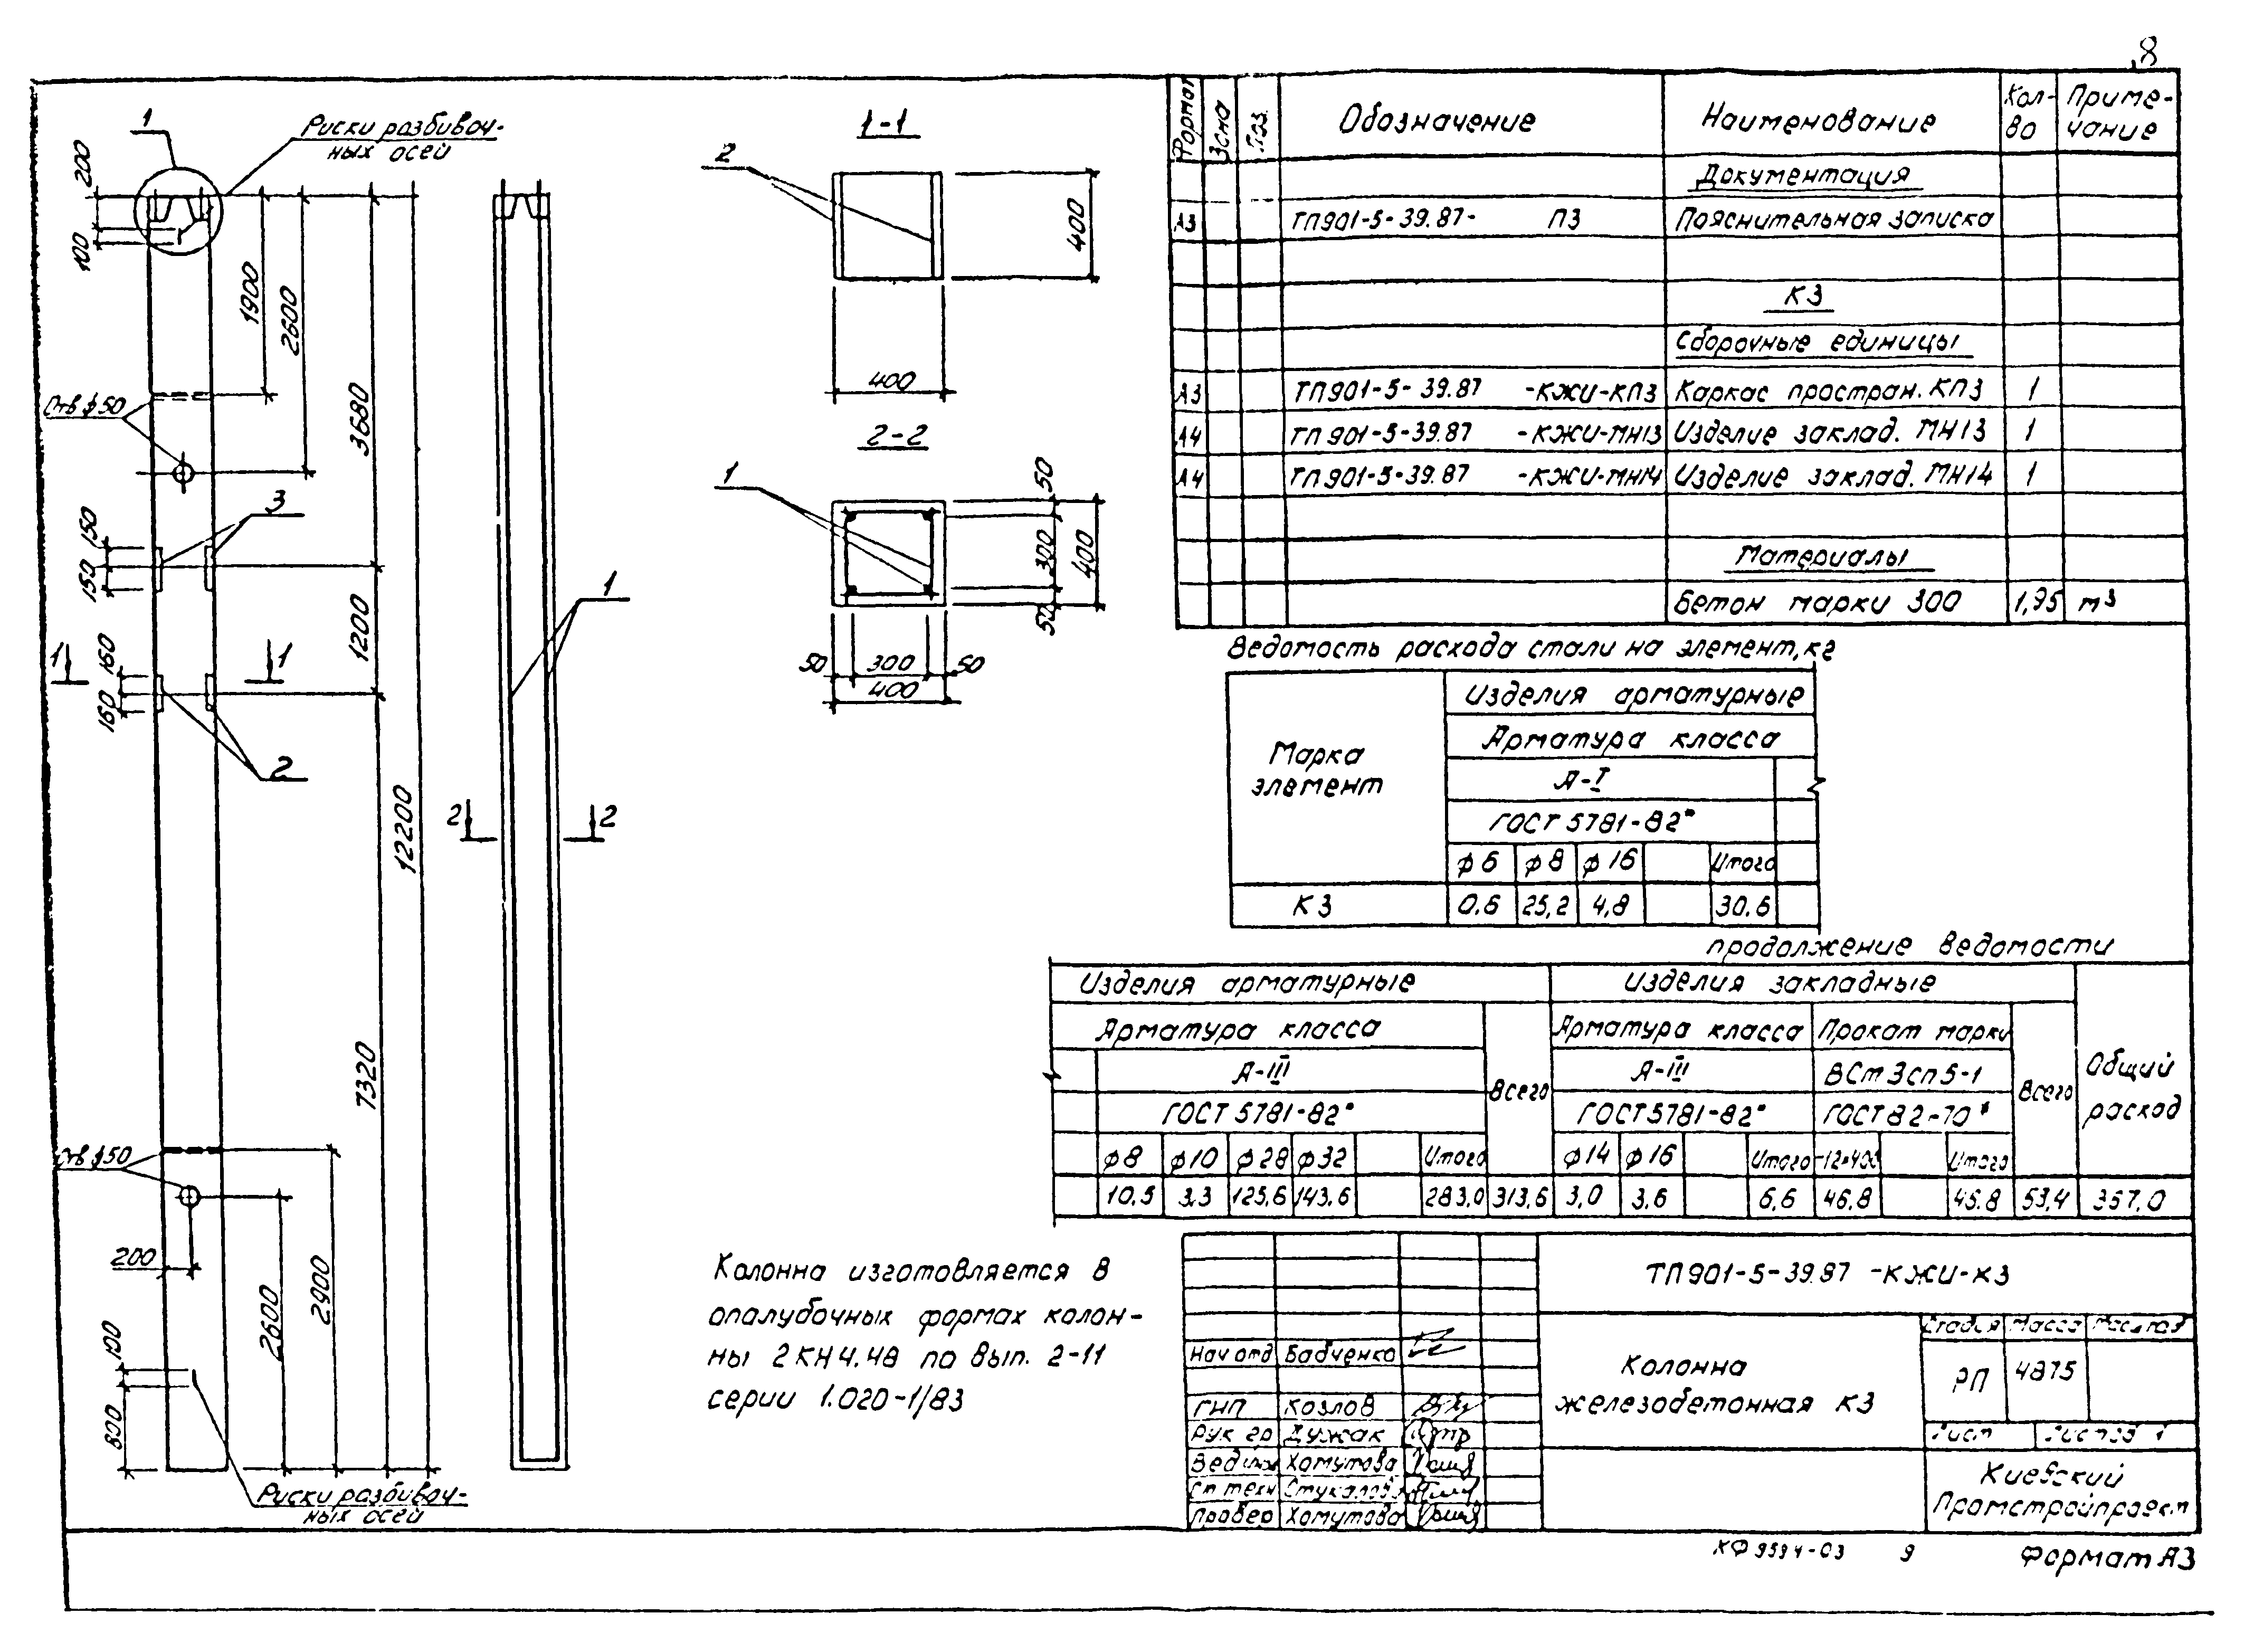 8
1
Риски разбивоч-
ных осей
200
100
1900
2600
3680
Отв ϕ50
3
150
150
1200
1
1
160
160
2
12200
7320
Отв ϕ50
200
2600
2900
100
800
Риски разбивоч-
ных осей
1
2
2
1-1
2
400
400
2-2
1
50
300
400
50
50 300 50
400
Формат Зона Поз. Обозначение Наименование Кол-во Приме-чание
Документация
А3 ТП901-5-39.87- ПЗ Пояснительная записка
К3
Сборочные единицы
А3 ТП901-5-39.87 -КЖИ-КП3 Каркас простран. КП3 1
А4 ТП901-5-39.87 -КЖИ-МН13 Изделие заклад. МН13 1
А4 ТП901-5-39.87 -КЖИ-МН14 Изделие заклад. МН14 1
Материалы
Бетон марки 300 1,95 м³
Ведомость расхода стали на элемент, кг
Марка
элемент
Изделия арматурные
Арматура класса
А-I
ГОСТ 5781-82*
ϕ6 ϕ8 ϕ16 Итого
К3 0,6 25,2 4,8 30,6
продолжение ведомости
Изделия арматурные Изделия закладные
Арматура класса Арматура класса Прокат марки
А-III А-III ВСт3сп5-1
Всего Всего Общий
расход
ГОСТ 5781-82* ГОСТ 5781-82* ГОСТ 82-70*
ϕ8 ϕ10 ϕ28 ϕ32 Итого ϕ14 ϕ16 Итого -12×400 Итого
10,5 3,3 125,6 143,6 283,0 313,6 3,0 3,6 6,6 46,8 46.8 53,4 367,0
Колонна изготовляется в
опалубочных формах колон-
ны 2КН4.48 по вып. 2-11
серии 1.020-1/83
ТП901-5-39.87 -КЖИ-К3
Нач отд Бабченко
ГИП Козлов
Рук гр Дужак
Вед инж Хомутова
Ст техн Стукалова
Провер Хомутова
Колонна
железобетонная К3
Стадия Масса Масштаб
РП 4875
Лист Листов 1
Киевский
Промстройпроект
КФ 9594-03 9 Формат А3